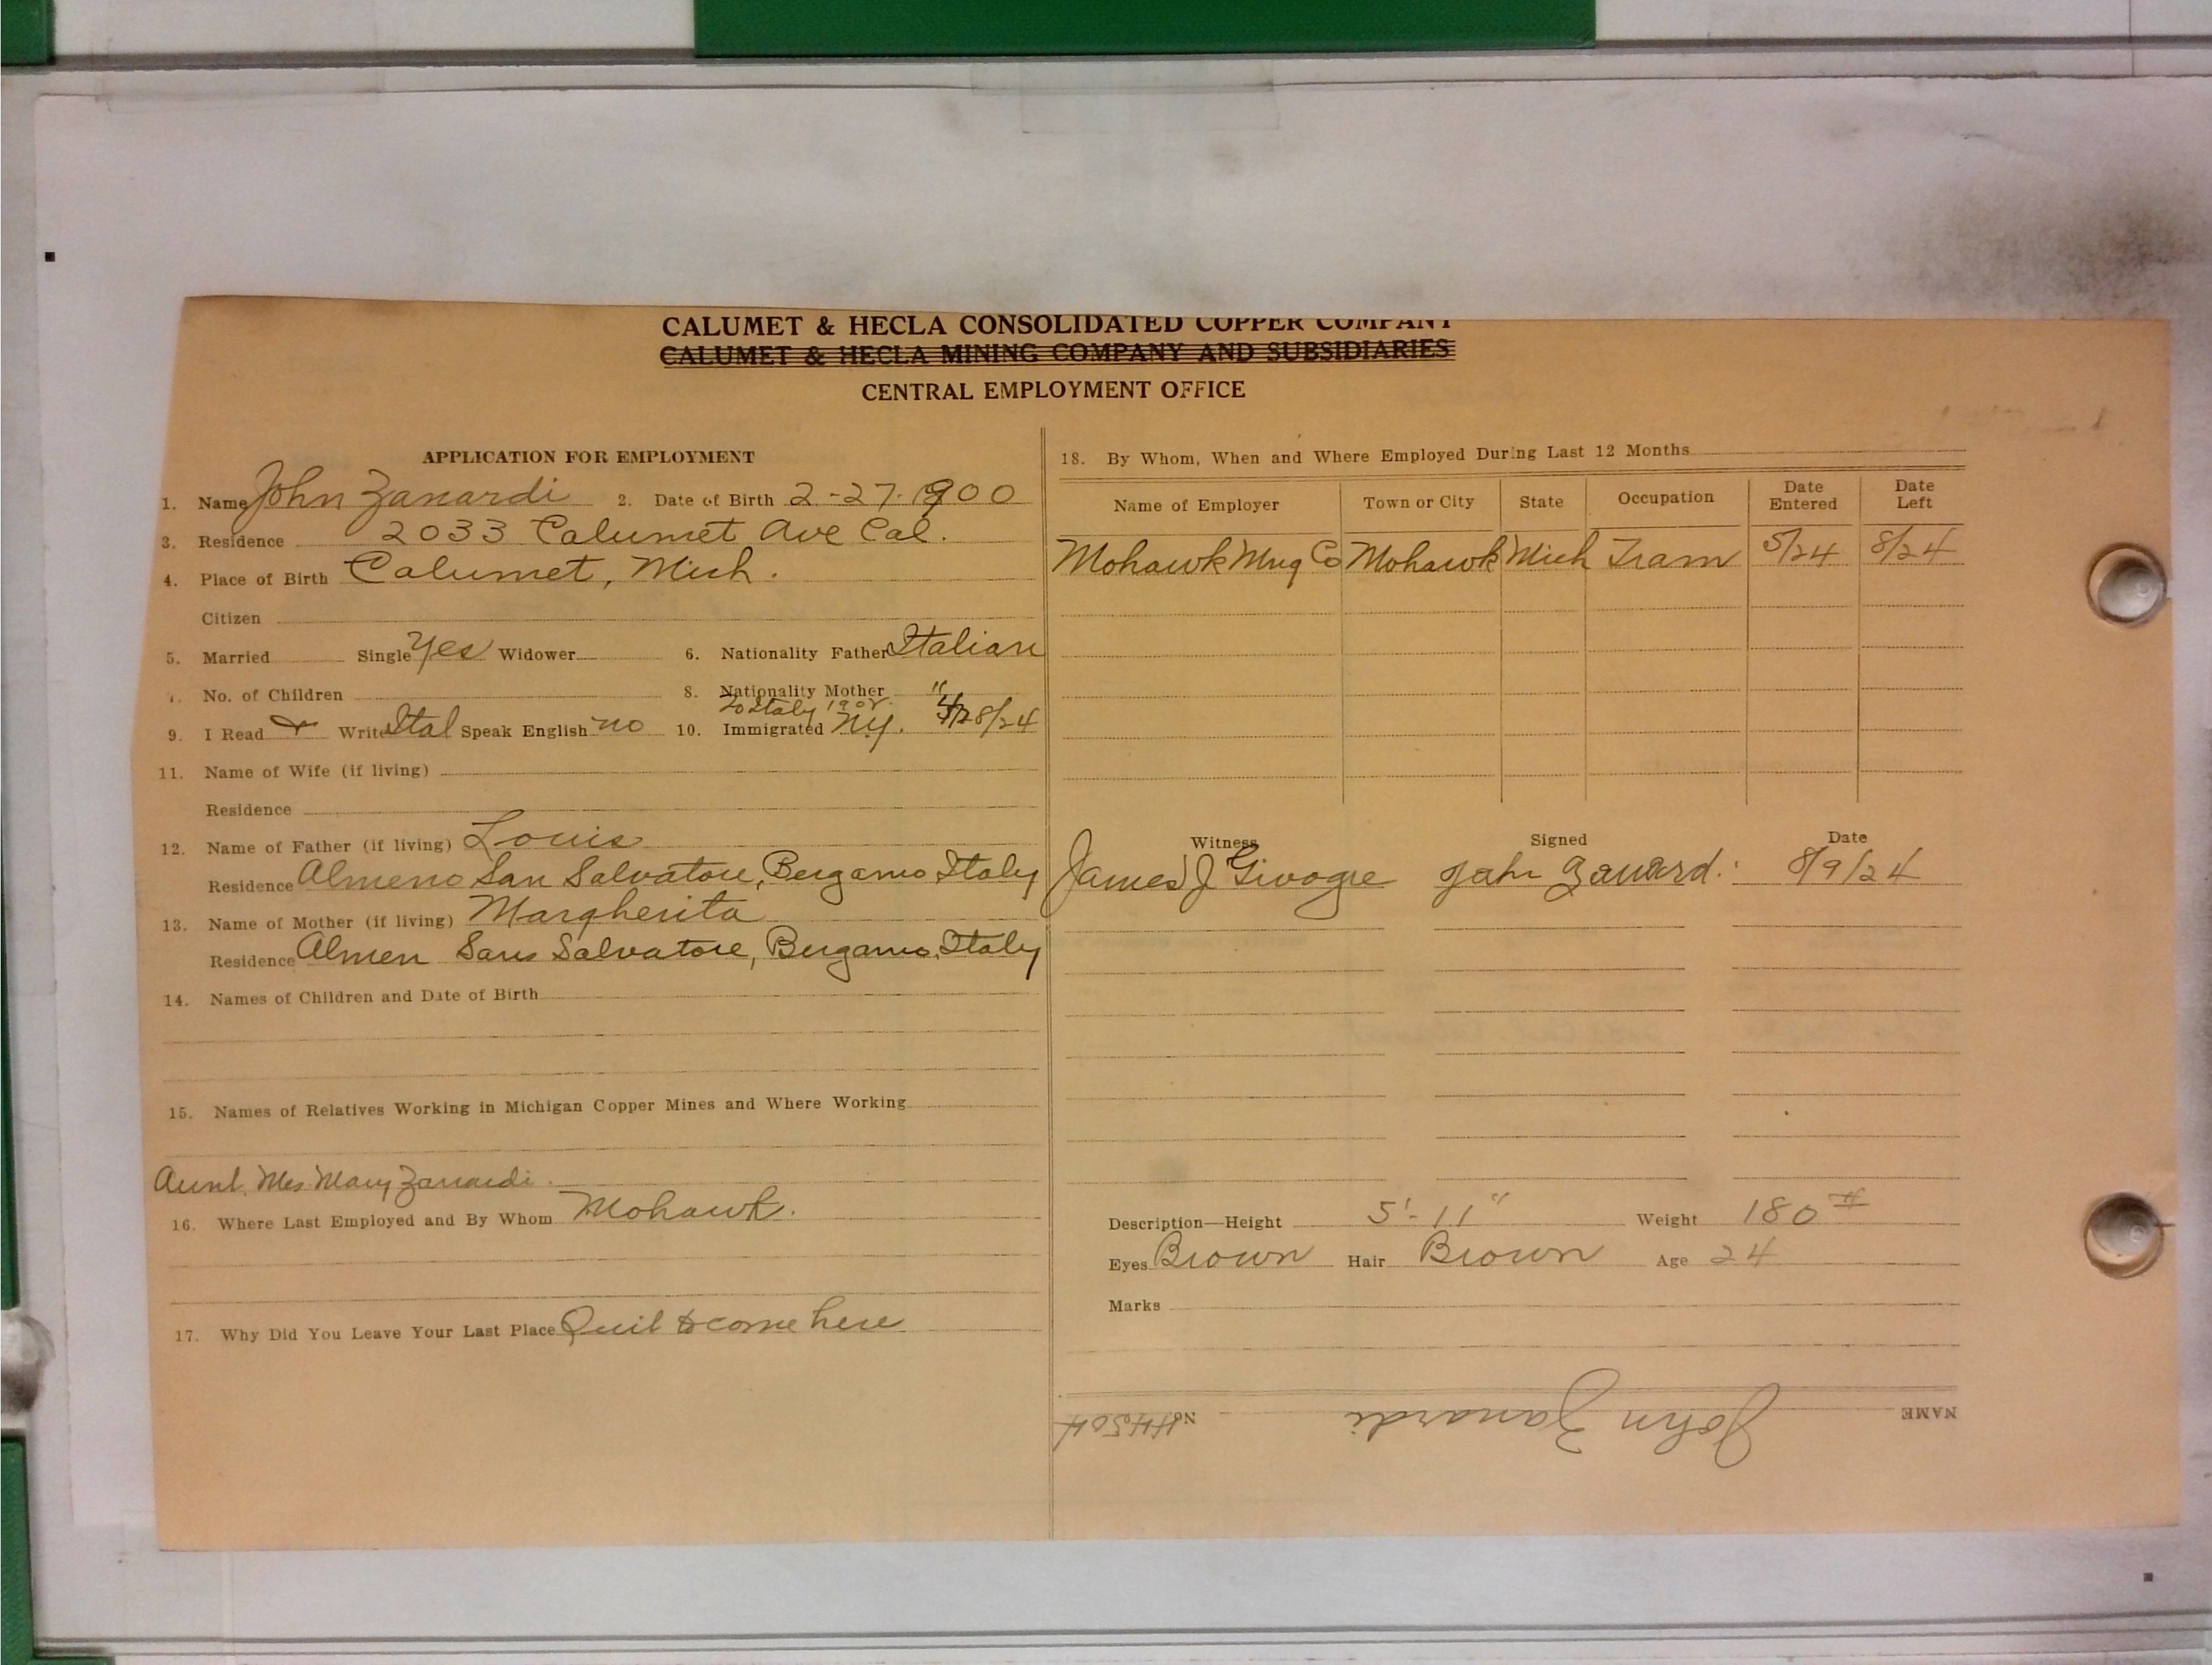 CALUMET & HECLA CONSOLIDATED COPPER COMPANY
CALUMET & HECLA MINING COMPANY AND SUBSIDIARIES
CENTRAL EMPLOYMENT OFFICE
APPLICATION FOR EMPLOYMENT
1. Name John Zanardi 2. Date of Birth 2-27-1900
3. Residence 2033 Calumet Ave Cal.
4. Place of Birth Calumet, Mich.
Citizen
5. Married Single Yes Widower 6. Nationality Father Italian
7. No. of Children 8. Nationality Mother "
To Italy 1908.
9. I Read & Write Ital Speak English no 10. Immigrated NY. /28/24
11. Name of Wife (if living)
Residence
12. Name of Father (if living) Louis
Residence Almeno San Salvatore, Bergamo, Italy
13. Name of Mother (if living) Margherita
Residence Almen San Salvatore, Bergamo, Italy
14. Names of Children and Date of Birth
15. Names of Relatives Working in Michigan Copper Mines and Where Working
Aunt, Mrs Mary Zanardi.
16. Where Last Employed and By Whom Mohawk.
17. Why Did You Leave Your Last Place Quit to come here
18. By Whom, When and Where Employed During Last 12 Months
Name of Employer Town or City State Occupation Date Entered Date Left
Mohawk Mng Co Mohawk Mich Tram 5/24 8/24
Witness Signed Date
James J John Zanardi 8/9/24
Description—Height 5'-11" Weight 180#
Eyes Brown Hair Brown Age 24
Marks
NAME John Zanardi No. 44504